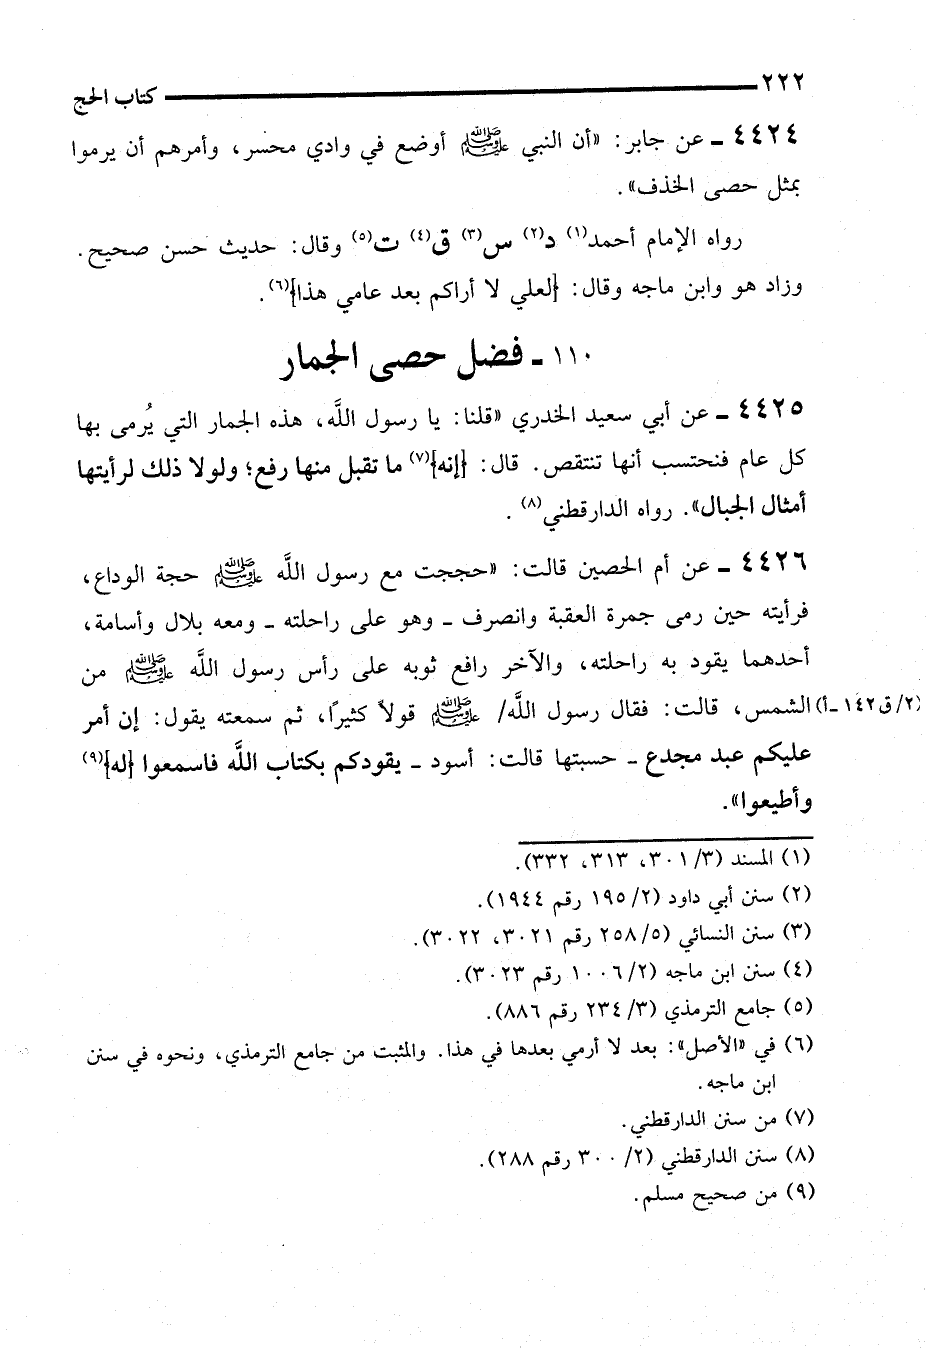 ٢٢٢ كتاب الحج
٤٤٢٤ ـ عن جابر: «أن النبي ﷺ أوضع في وادي محسر، وأمرهم أن يرموا
بمثل حصى الخذف».
رواه الإمام أحمد(١) د(٢) س(٣) ق(٤) ت(٥) وقال: حديث حسن صحيح.
وزاد هو وابن ماجه وقال: {لعلي لا أراكم بعد عامي هذا}(٦).
١١٠ ـ فضل حصى الجمار
٤٤٢٥ ـ عن أبي سعيد الخدري «قلنا: يا رسول اللَّه، هذه الجمار التي يُرمى بها
كل عام فنحتسب أنها تنتقص. قال: {إنه}(٧) ما تقبل منها رفع؛ ولولا ذلك لرأيتها
أمثال الجبال». رواه الدارقطني(٨).
٤٤٢٦ ـ عن أم الحصين قالت: «حججت مع رسول اللَّه ﷺ حجة الوداع،
فرأيته حين رمى جمرة العقبة وانصرف ـ وهو على راحلته ـ ومعه بلال وأسامة،
أحدهما يقود به راحلته، والآخر رافع ثوبه على رأس رسول اللَّه ﷺ من
(٢/ق١٤٢-أ) الشمس، قالت: فقال رسول اللَّه/ ﷺ قولاً كثيرًا، ثم سمعته يقول: إن أمر
عليكم عبد مجدع ـ حسبتها قالت: أسود ـ يقودكم بكتاب اللَّه فاسمعوا {له}(٩)
وأطيعوا».
(١) المسند (٣/ ٣٠١، ٣١٣، ٣٣٢).
(٢) سنن أبي داود (٢/ ١٩٥ رقم ١٩٤٤).
(٣) سنن النسائي (٥/ ٢٥٨ رقم ٣٠٢١، ٣٠٢٢).
(٤) سنن ابن ماجه (٢/ ١٠٠٦ رقم ٣٠٢٣).
(٥) جامع الترمذي (٣/ ٢٣٤ رقم ٨٨٦).
(٦) في «الأصل»: بعد لا أرمي بعدها في هذا. والمثبت من جامع الترمذي، ونحوه في سنن
ابن ماجه.
(٧) من سنن الدارقطني.
(٨) سنن الدارقطني (٢/ ٣٠٠ رقم ٢٨٨).
(٩) من صحيح مسلم.